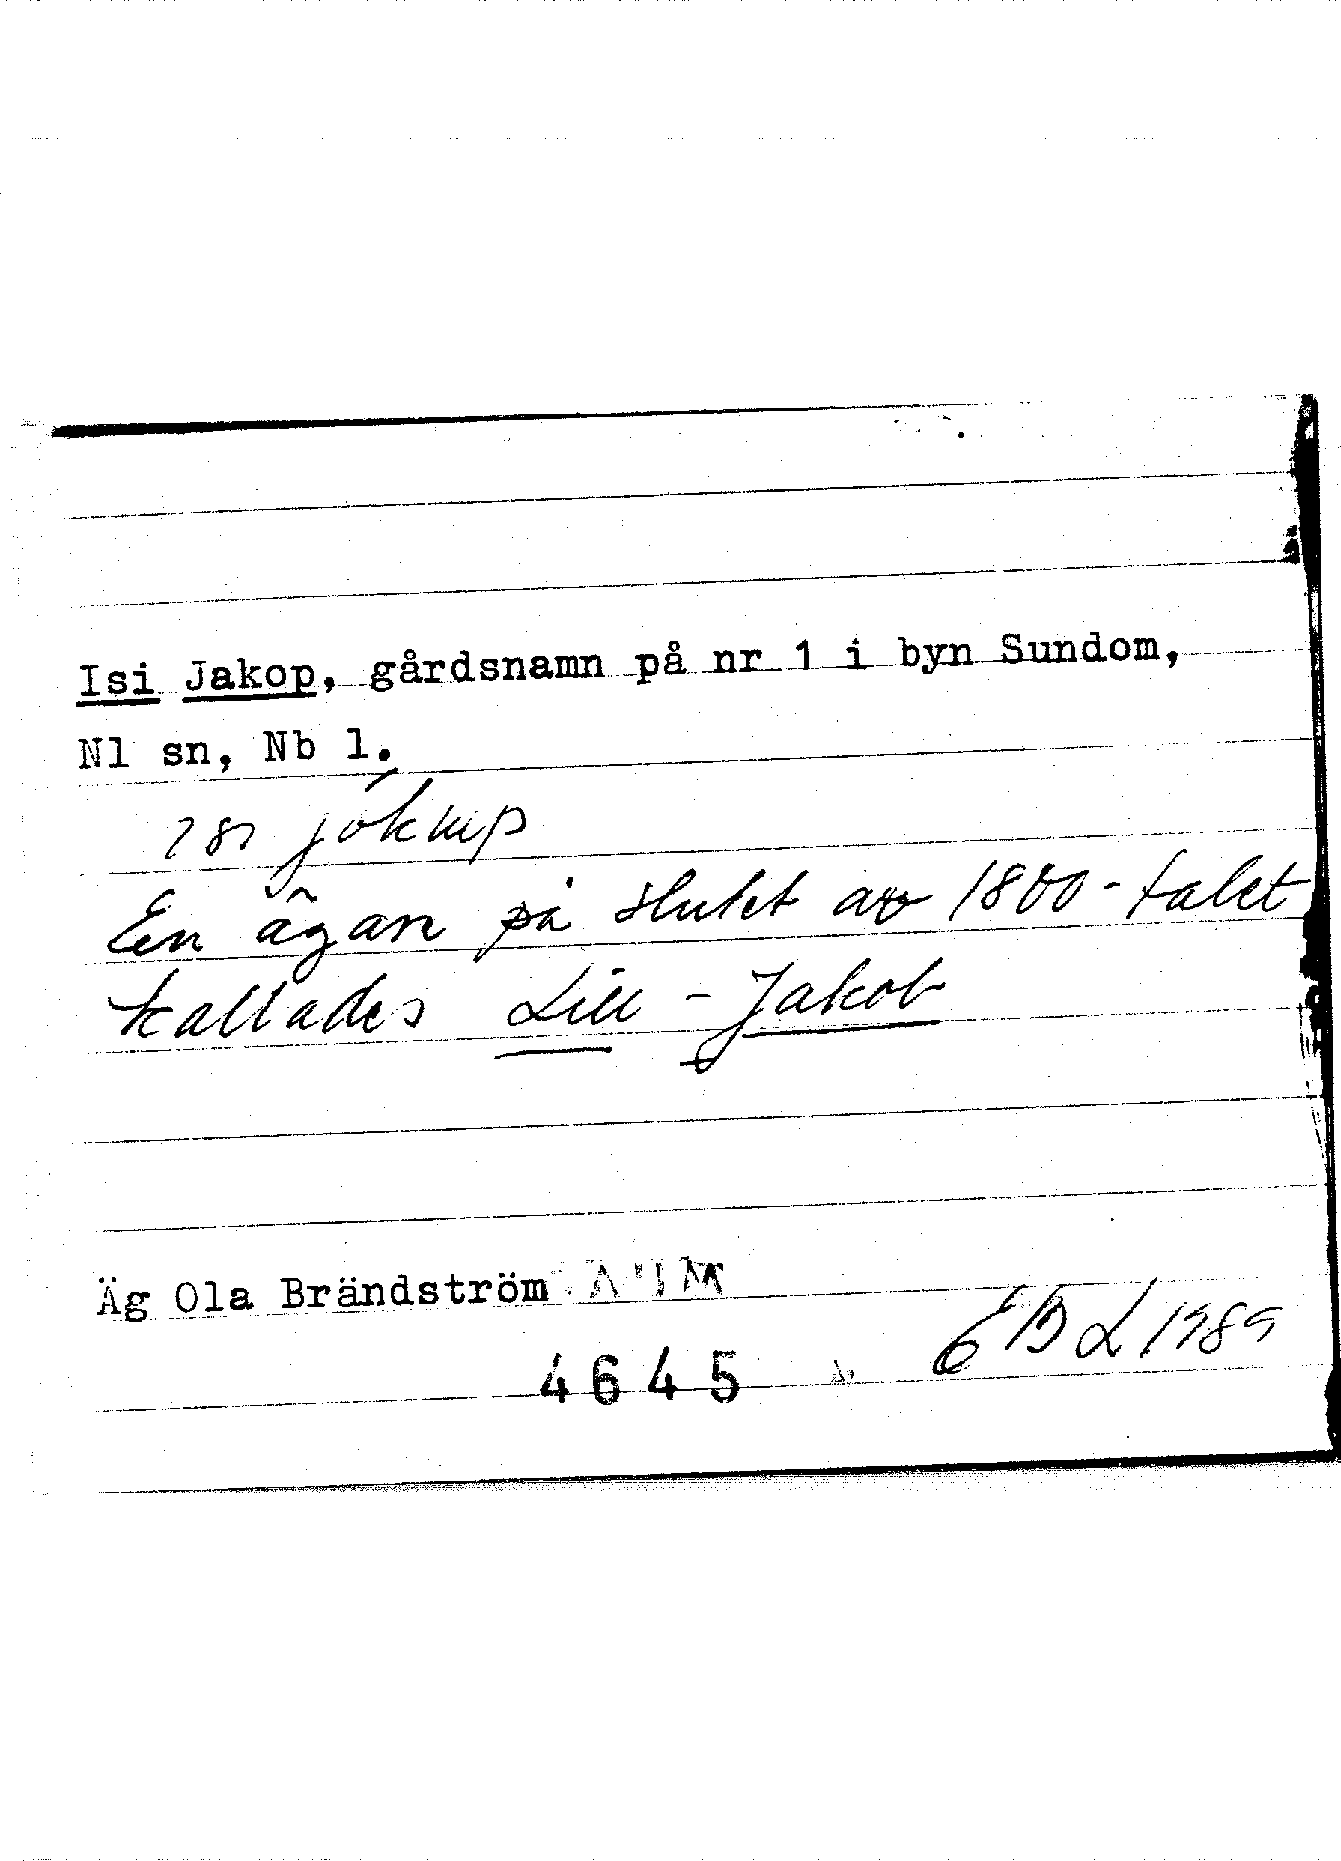 Isi Jakop, gårdsnamn på nr 1 i byn Sundom,
Nl sn, Nb l.
En ägare på slutet av 1800-talet
kallades Lill-Jakob
Äg Ola Brändström
4645 EBL 1989